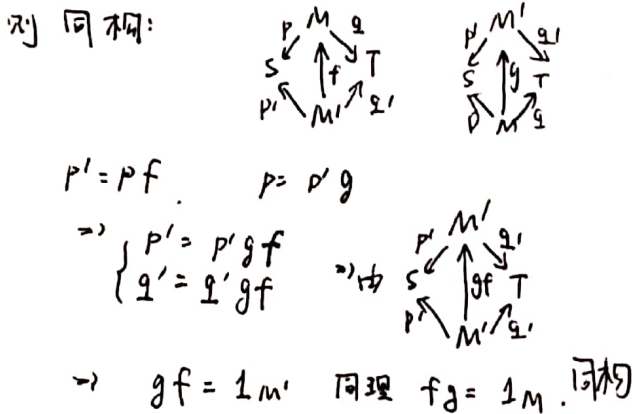 则 同构:
P M q
S f T
P' M' q'
P' M' q'
S g T
P M q
P' = P f . P = P' g
⇒ { P' = P' g f
q' = q' g f
⇒ 由
P' M' q'
S gf T
P' M' q'
⇒ g f = 1_{M'} 同理 f g = 1_M . 同构